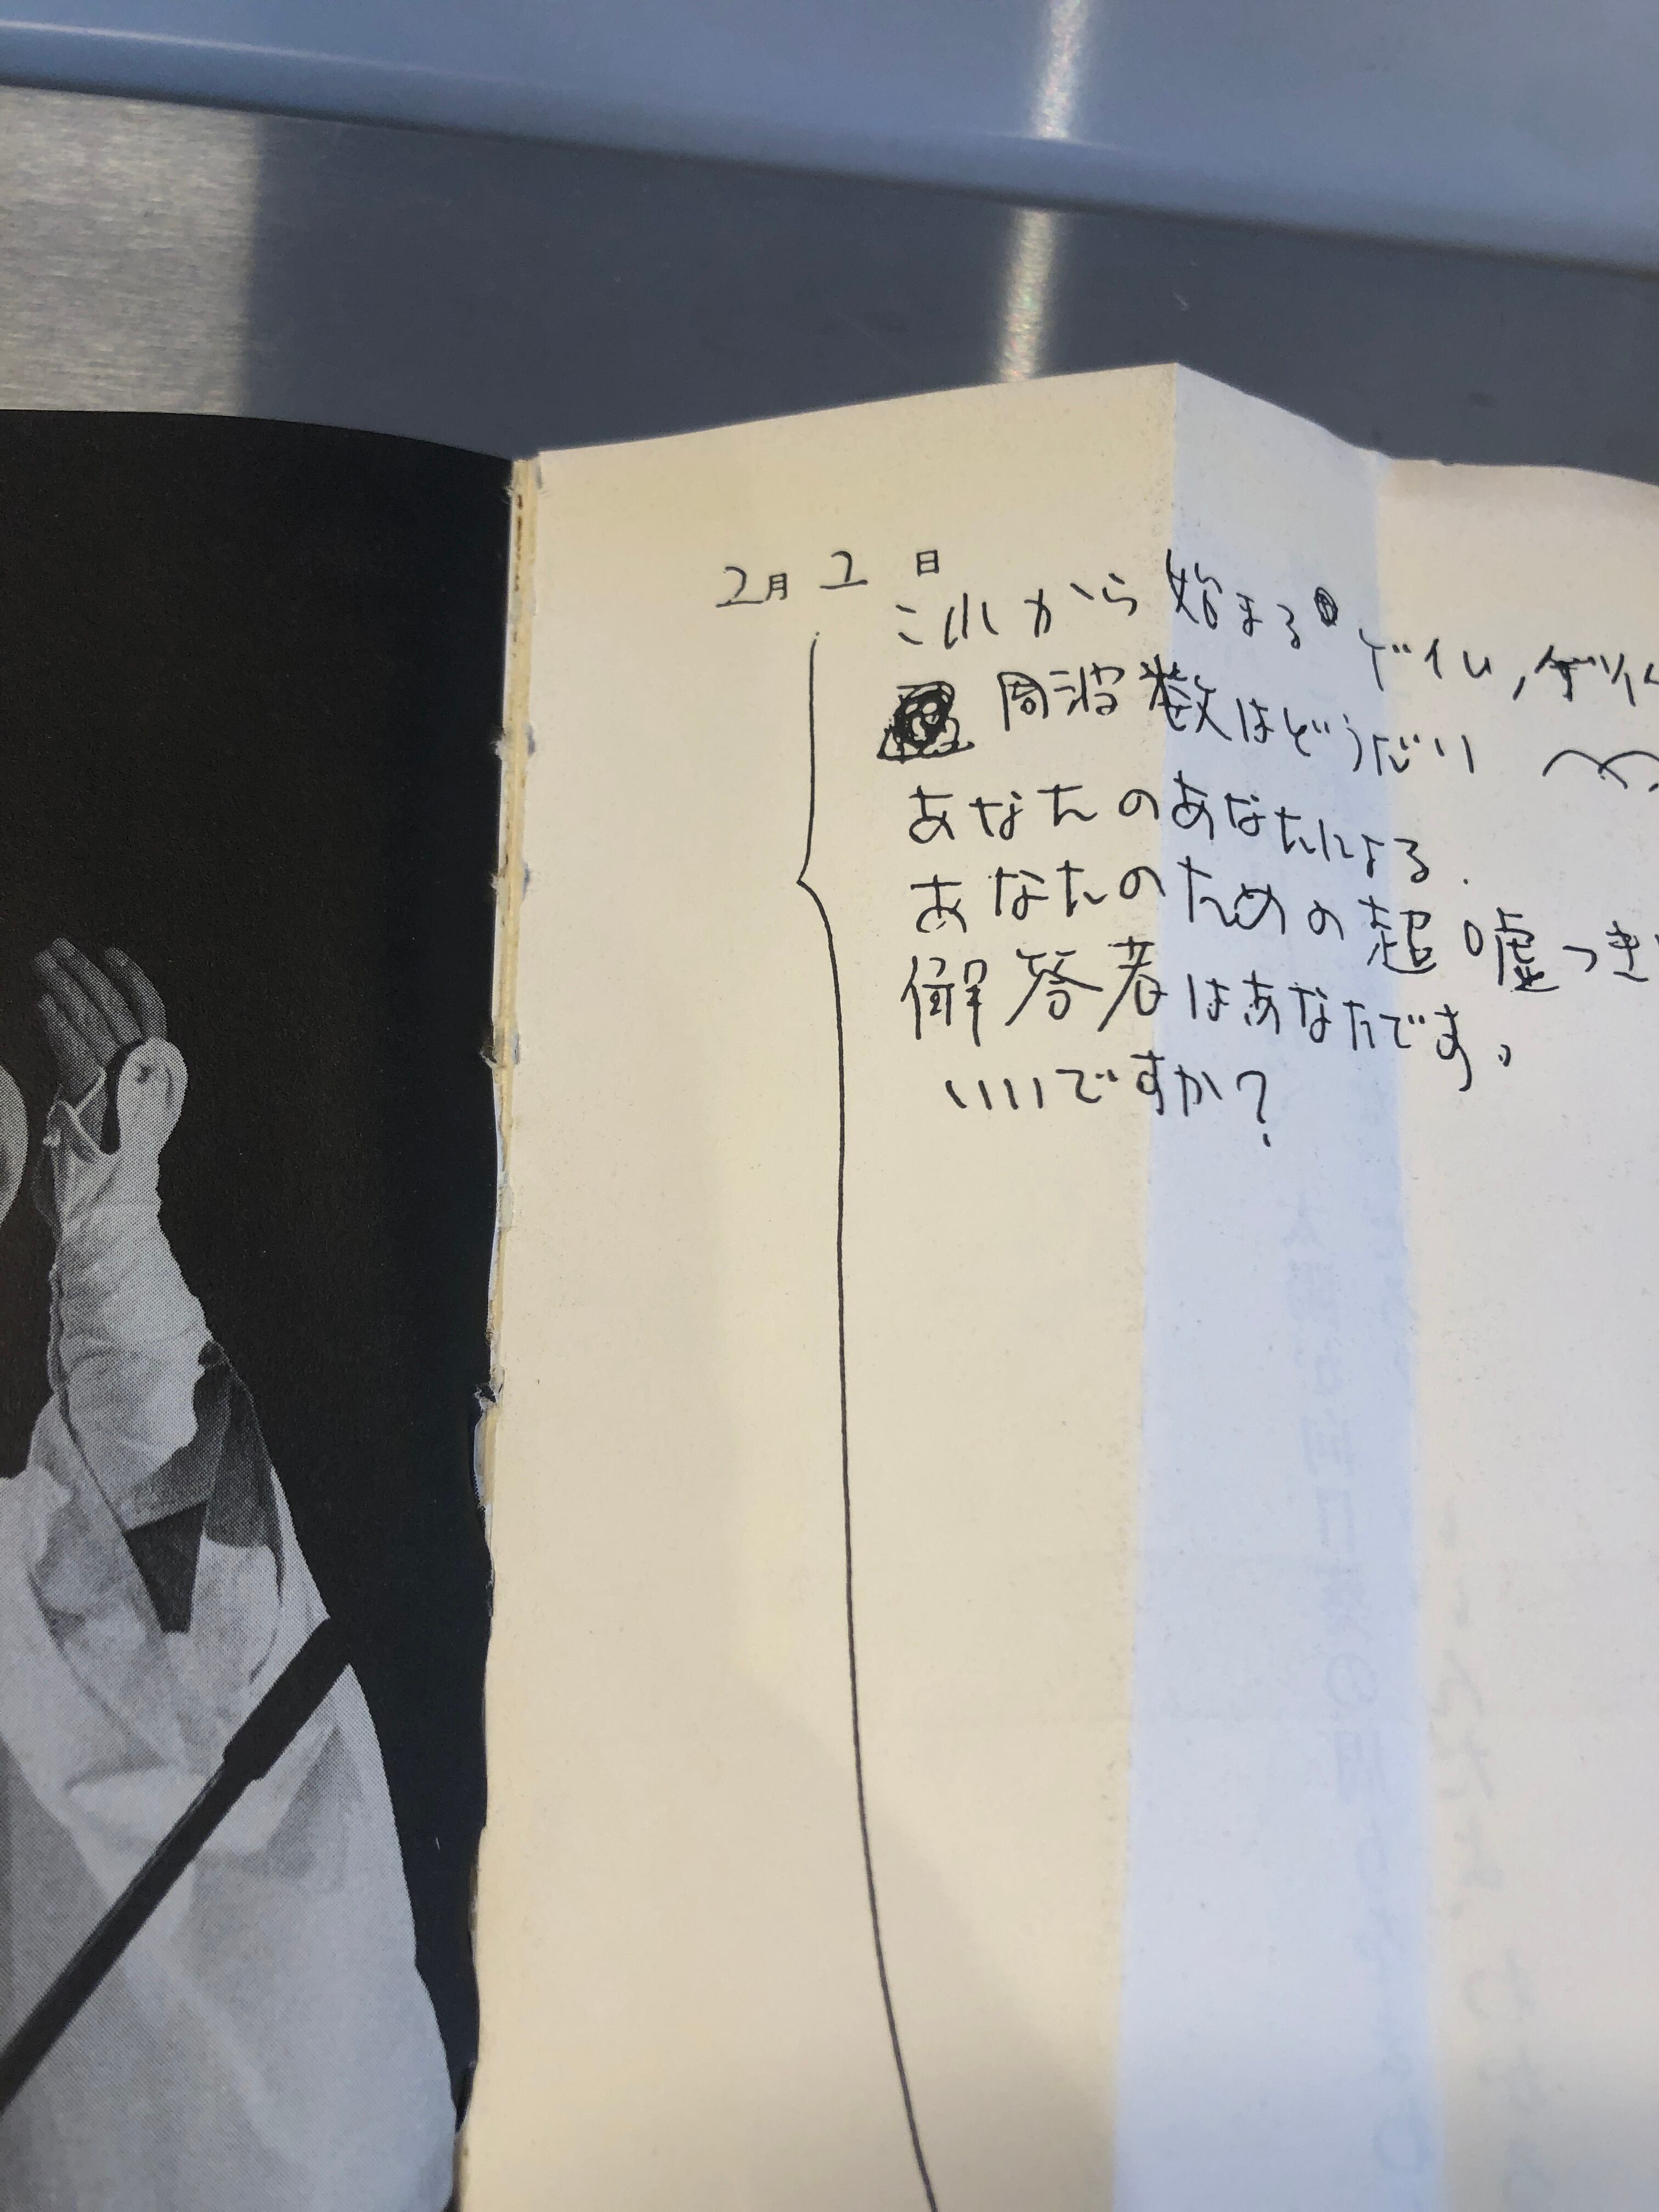 2月1日
これから始まる
周波数はどうだい
あなたのあなたによる.
あなたのための超嘘つき
解答者はあなたです。
いいですか?